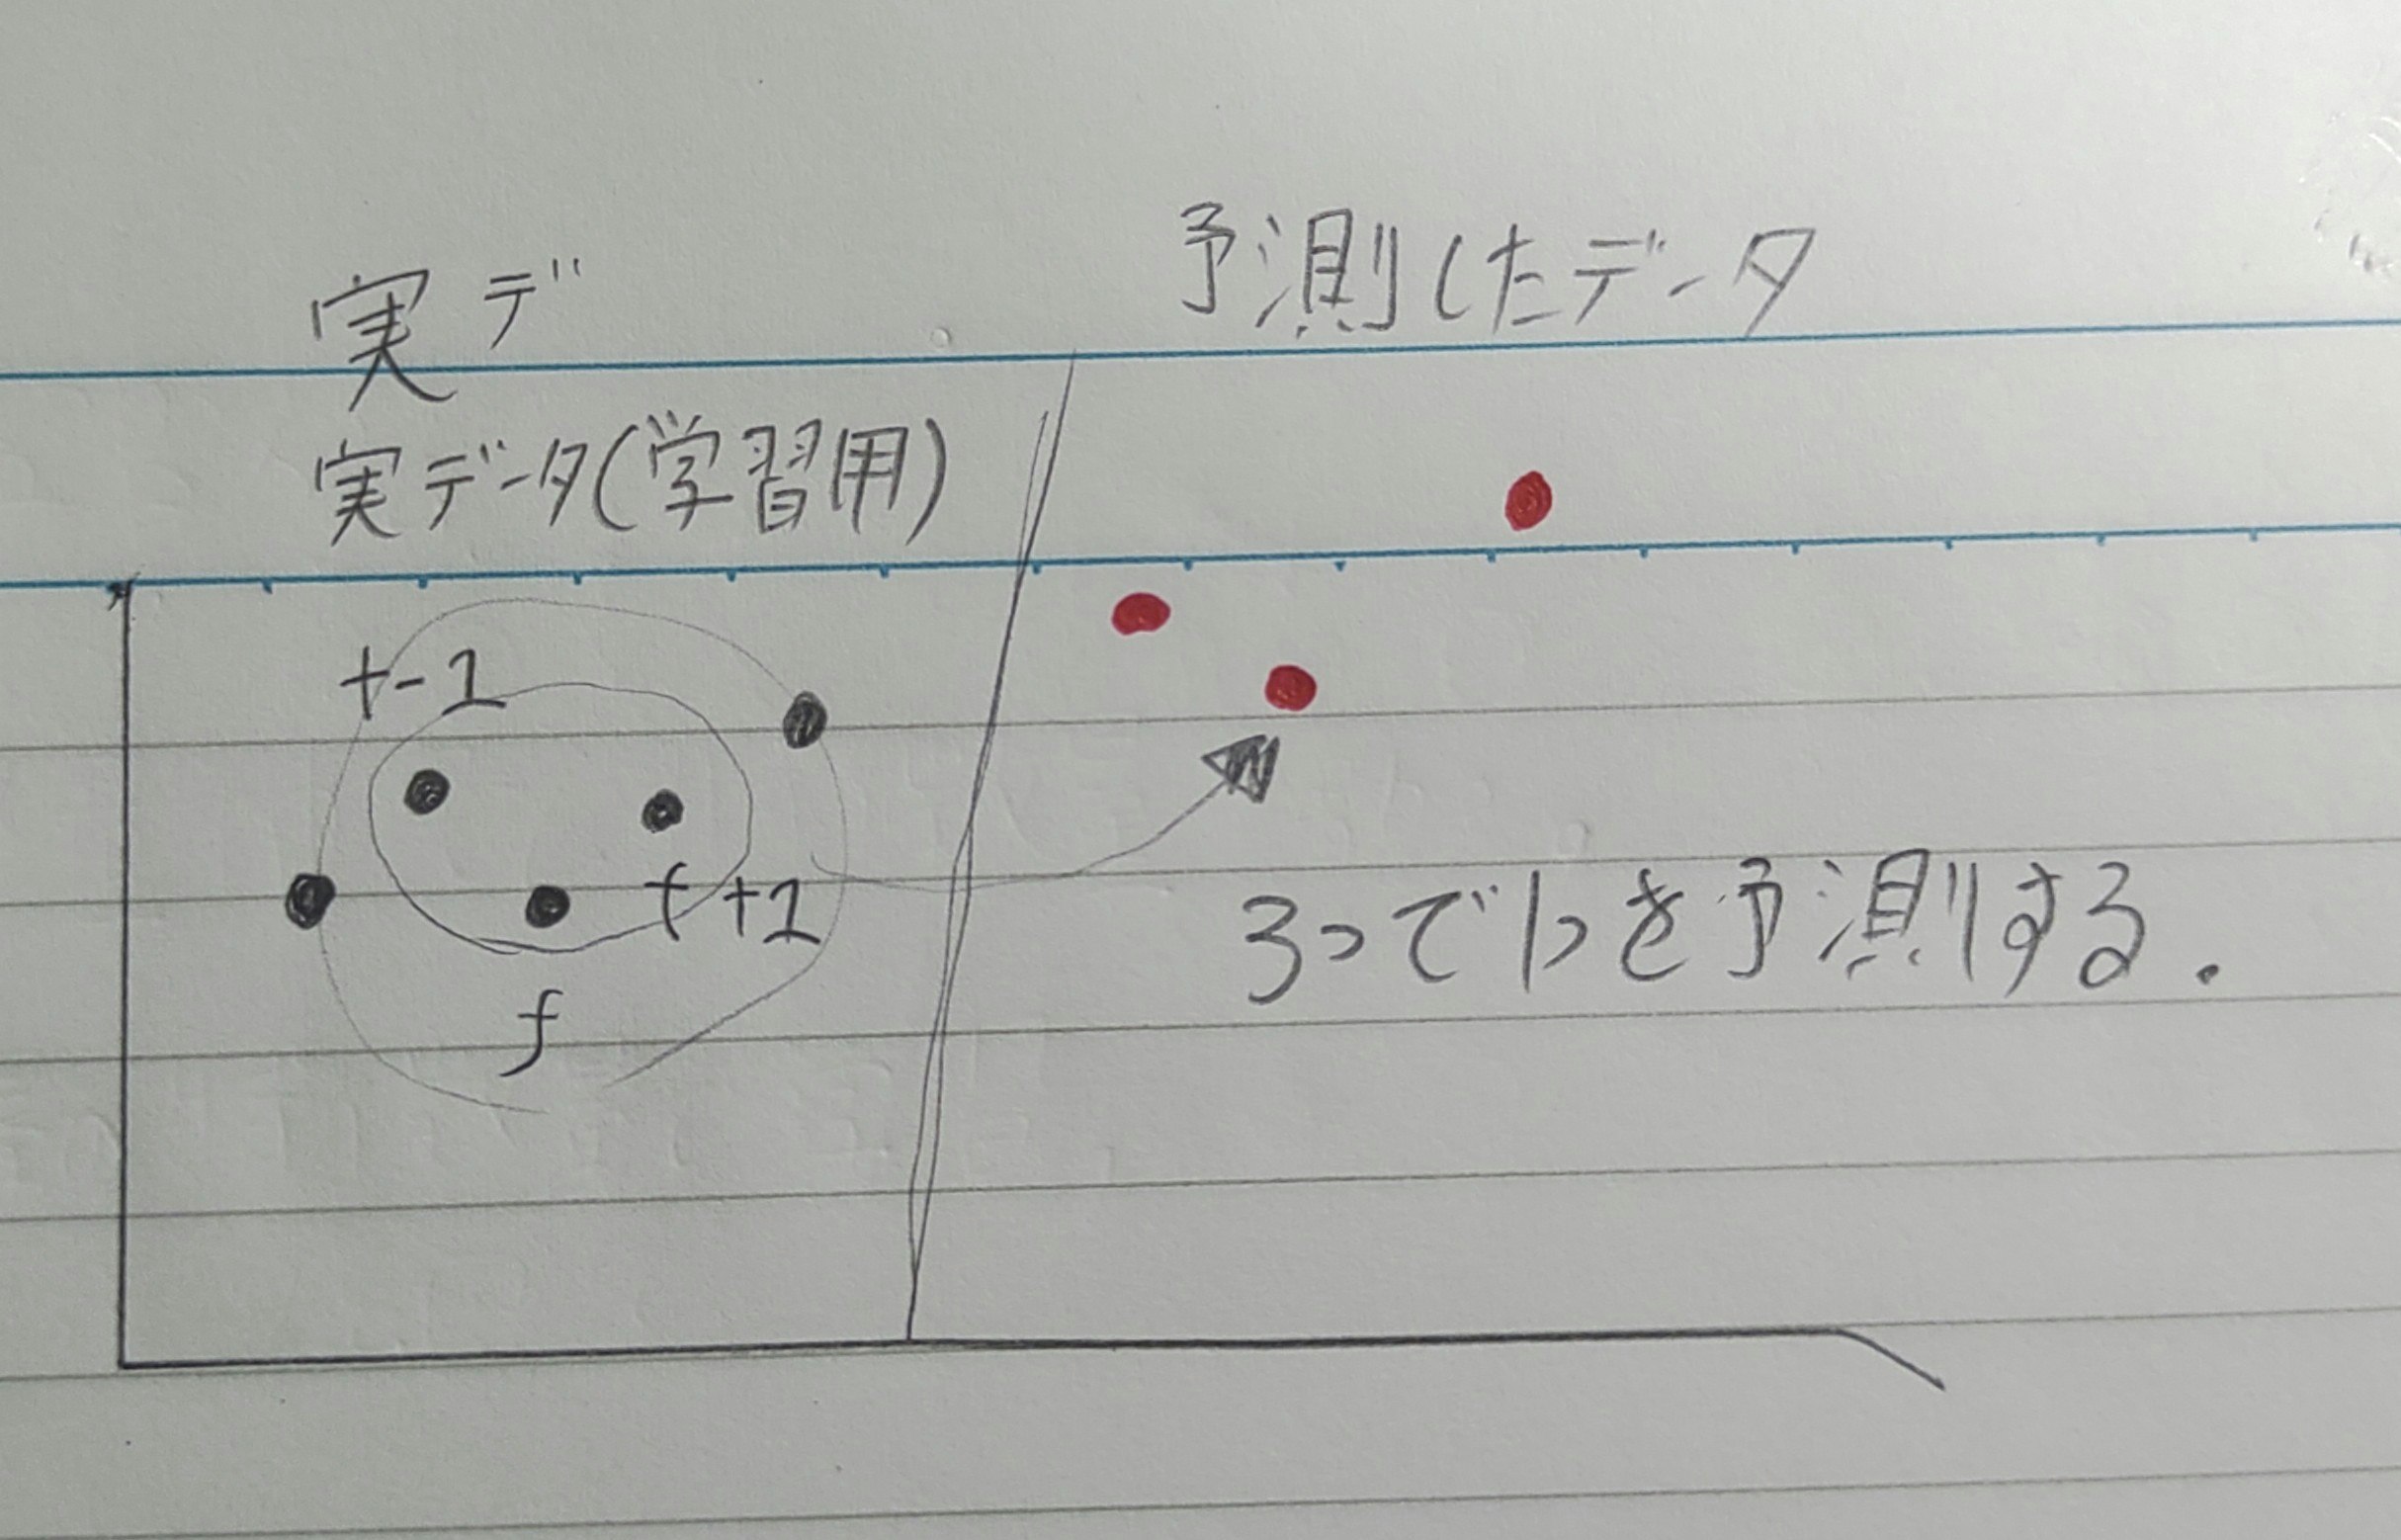 予測したデータ
実デ
実データ(学習用)
t-1
t+1
t
3つで1つを予測する.